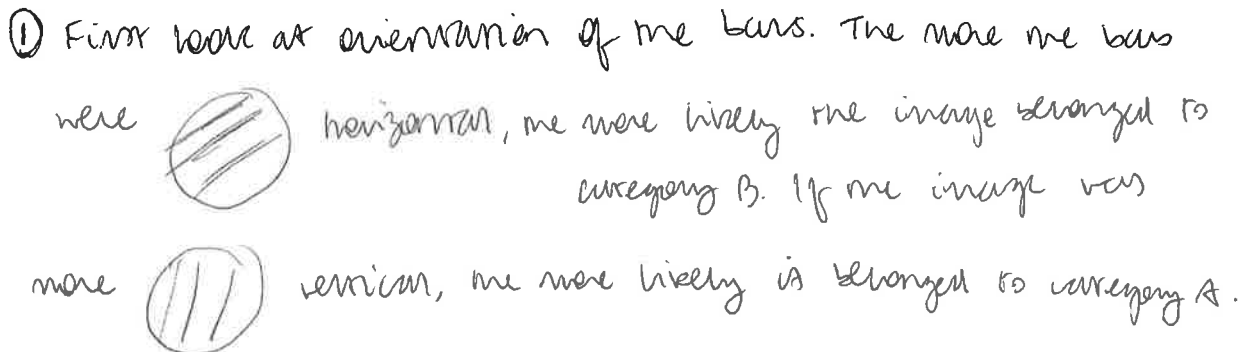 ① First look at orientation of the bars. The more the bars
were horizontal, the more likely the image belonged to
category B. If the image was
more vertical, the more likely it belonged to category A.